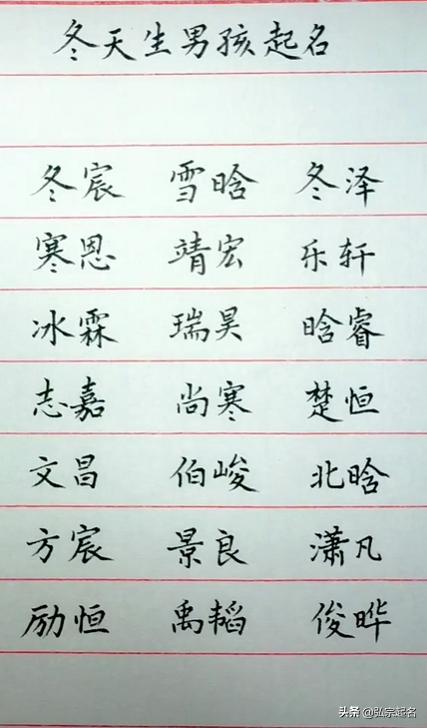 冬天生男孩起名
冬宸 雪晗 冬泽
寒恩 靖宏 乐轩
冰霖 瑞昊 晗睿
志嘉 尚寒 楚恒
文昌 伯峻 北晗
方宸 景良 潇凡
励恒 禹韬 俊晔
头条 @弘宗起名